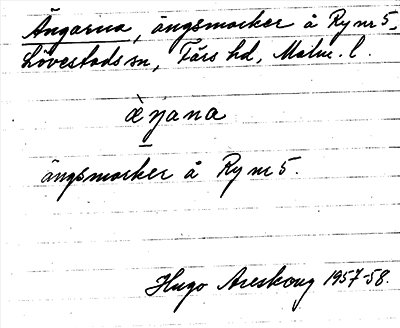 Ängarna, ängsmarker å Ry nr 5,
Lövestads sn, Färs hd, Malm. l.
æ̀ŋana
ängsmarker å Ry nr 5.
Hugo Areskoug 1957-58.